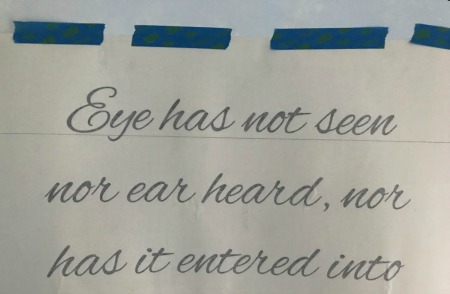 Eye has not seen
nor ear heard, nor
has it entered into